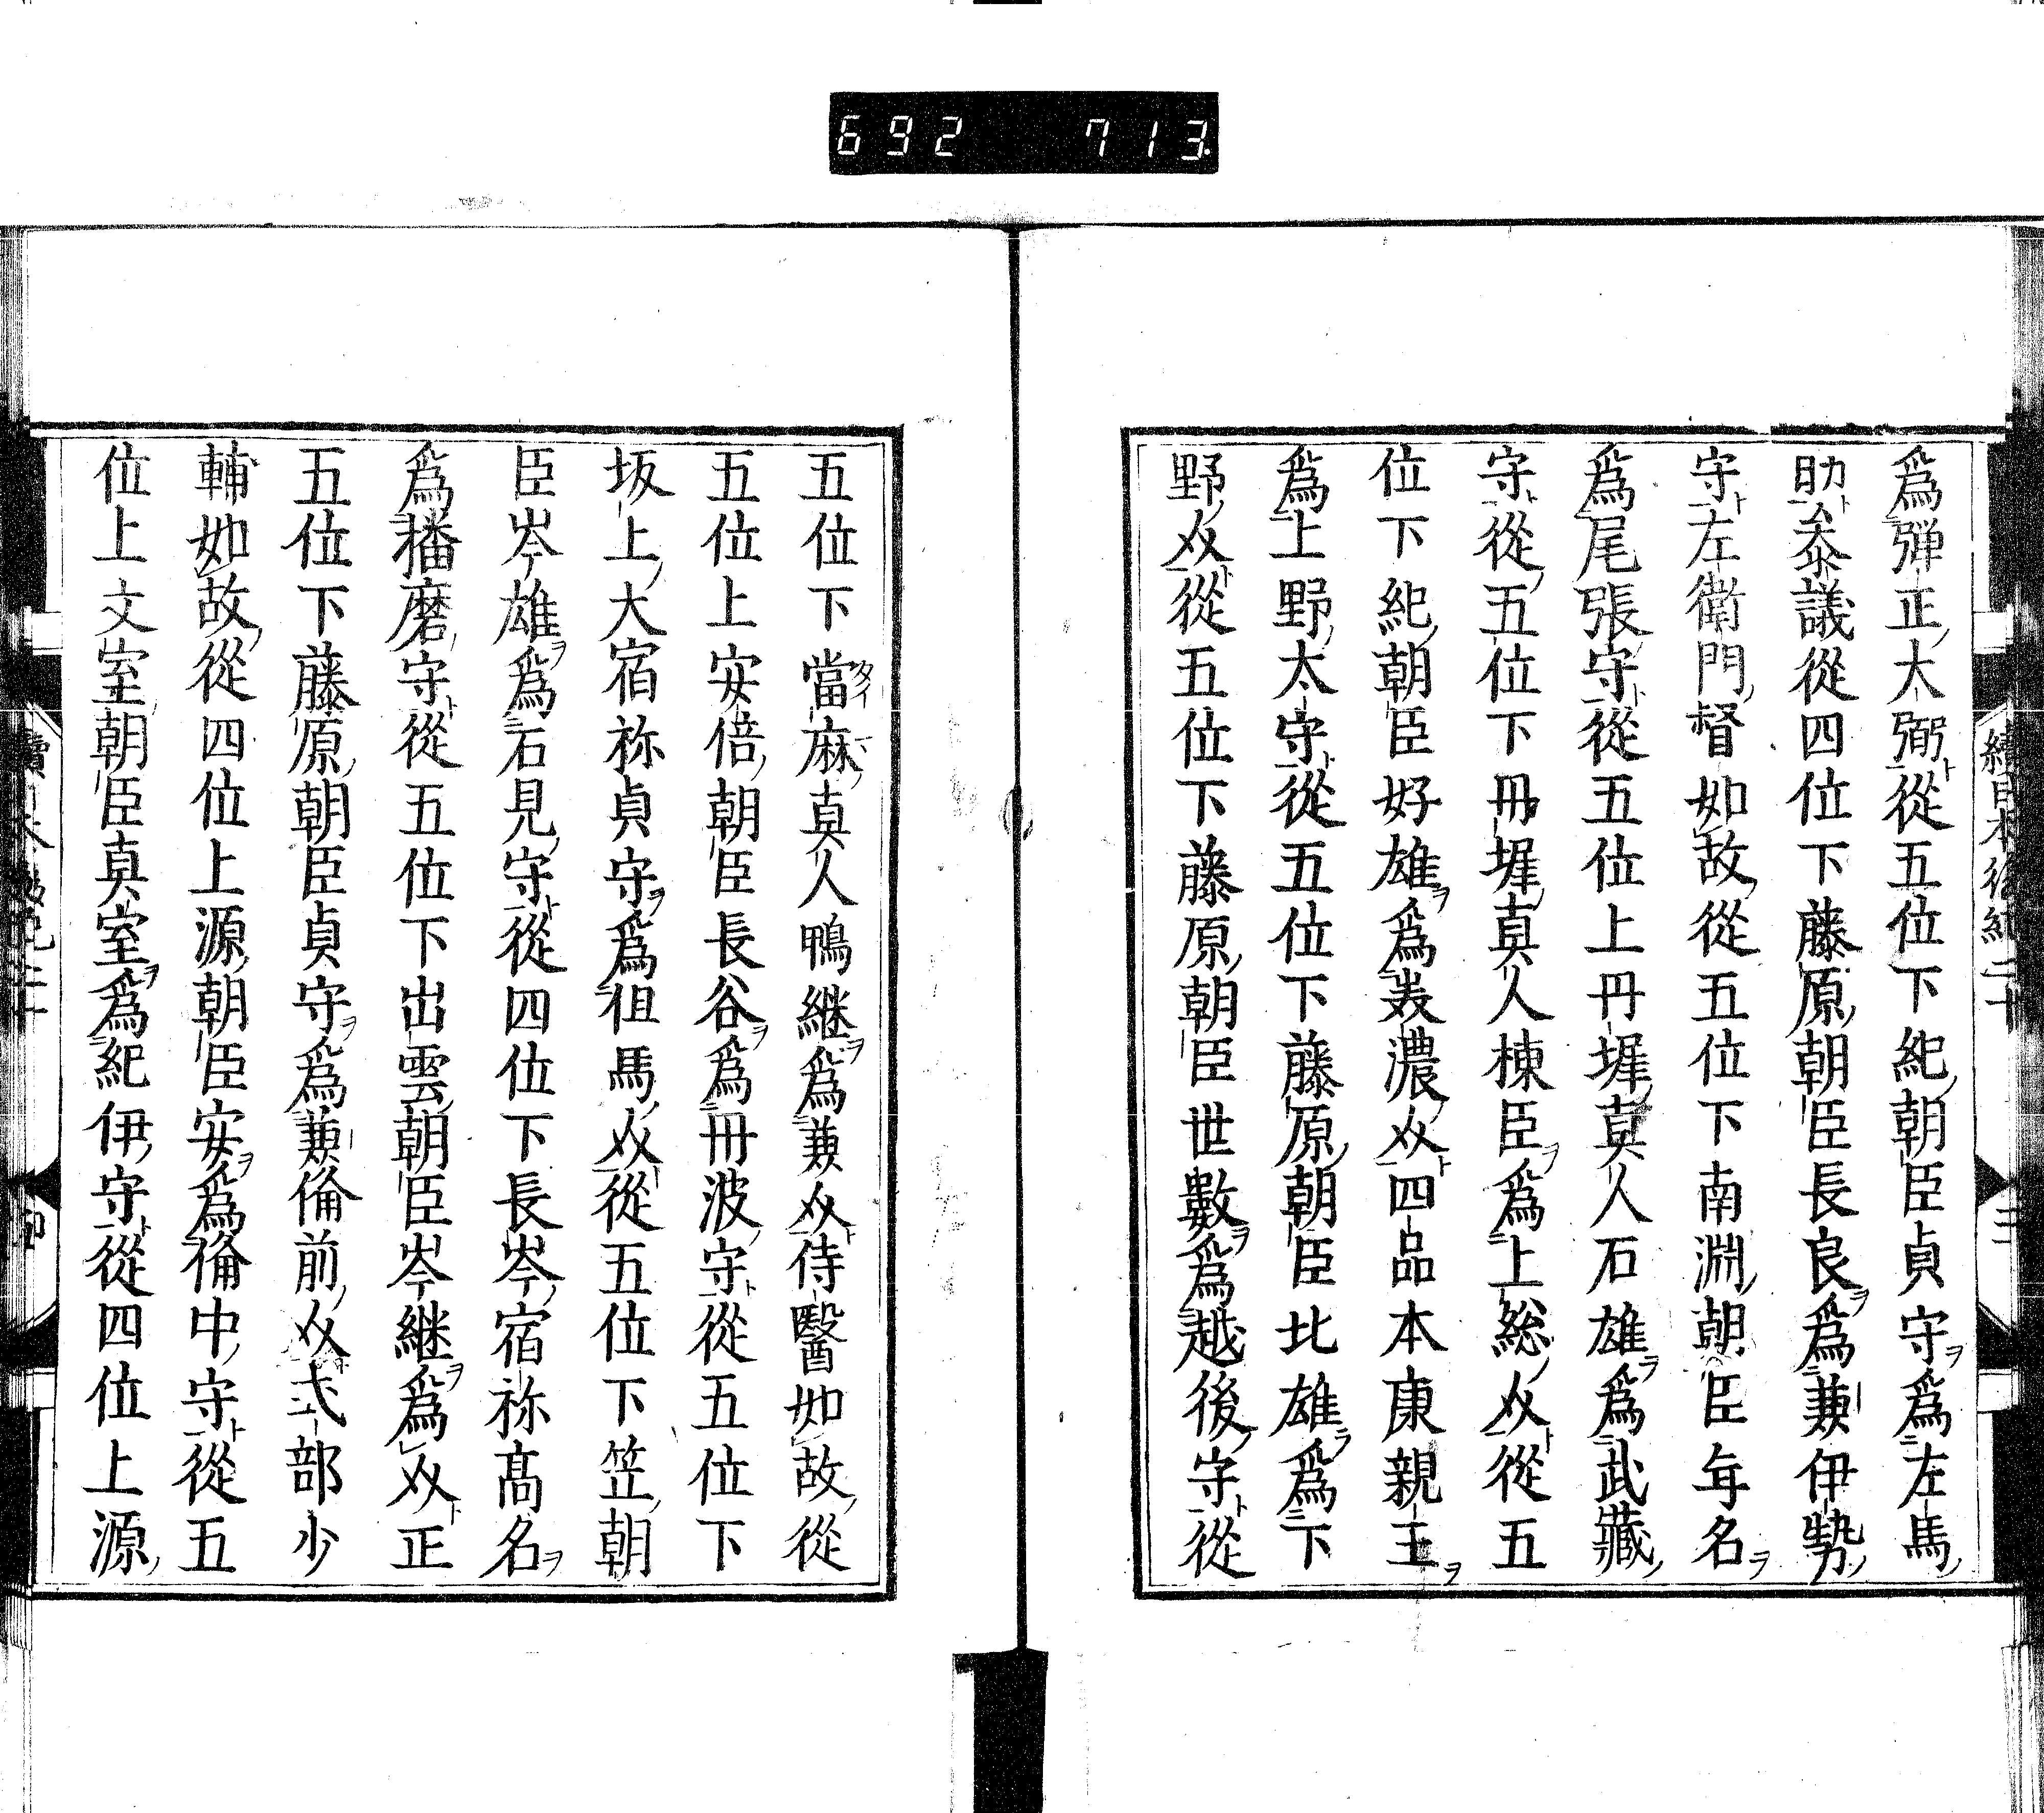 692 713
續日本後紀二十
三
爲彈正大弼從五位下紀朝臣貞守爲左馬
助叅議從四位下藤原朝臣長良爲兼伊勢
守左衛門督如故從五位下南淵朝臣年名
爲尾張守從五位上丹墀真人石雄爲武藏
守從五位下丹墀真人棟臣爲上総介從五
位下紀朝臣好雄爲美濃介四品本康親王
爲上野太守從五位下藤原朝臣比雄爲下
野介從五位下藤原朝臣世數爲越後守從
五位下當麻真人鴨継爲兼介侍醫如故從
五位上安倍朝臣長谷爲丹波守從五位下
坂上大宿祢貞守爲但馬介從五位下笠朝
臣岑雄爲石見守從四位下長岑宿祢髙名
爲播磨守從五位下出雲朝臣岑継爲介正
五位下藤原朝臣貞守爲兼備前介式部少
輔如故從四位上源朝臣安爲備中守從五
位上文室朝臣真室爲紀伊守從四位上源